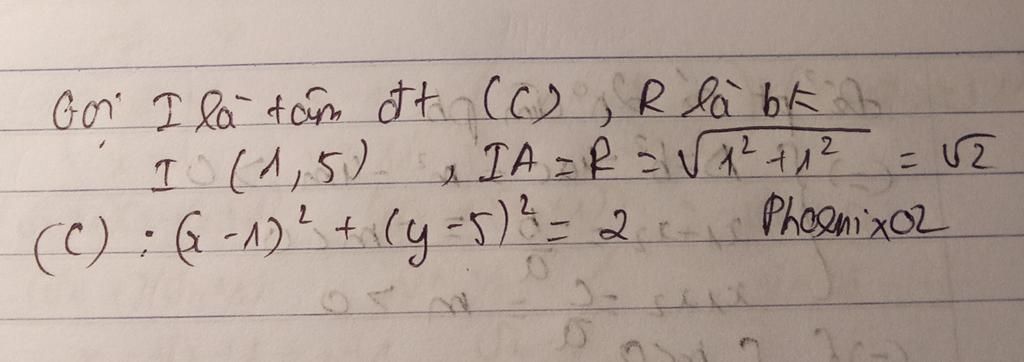 Gọi I là tâm đtt (C), R là bk
I (1,5), IA = R = √(1² + 1²) = √2
(C) : (x - 1)² + (y - 5)² = 2 Phoenix02